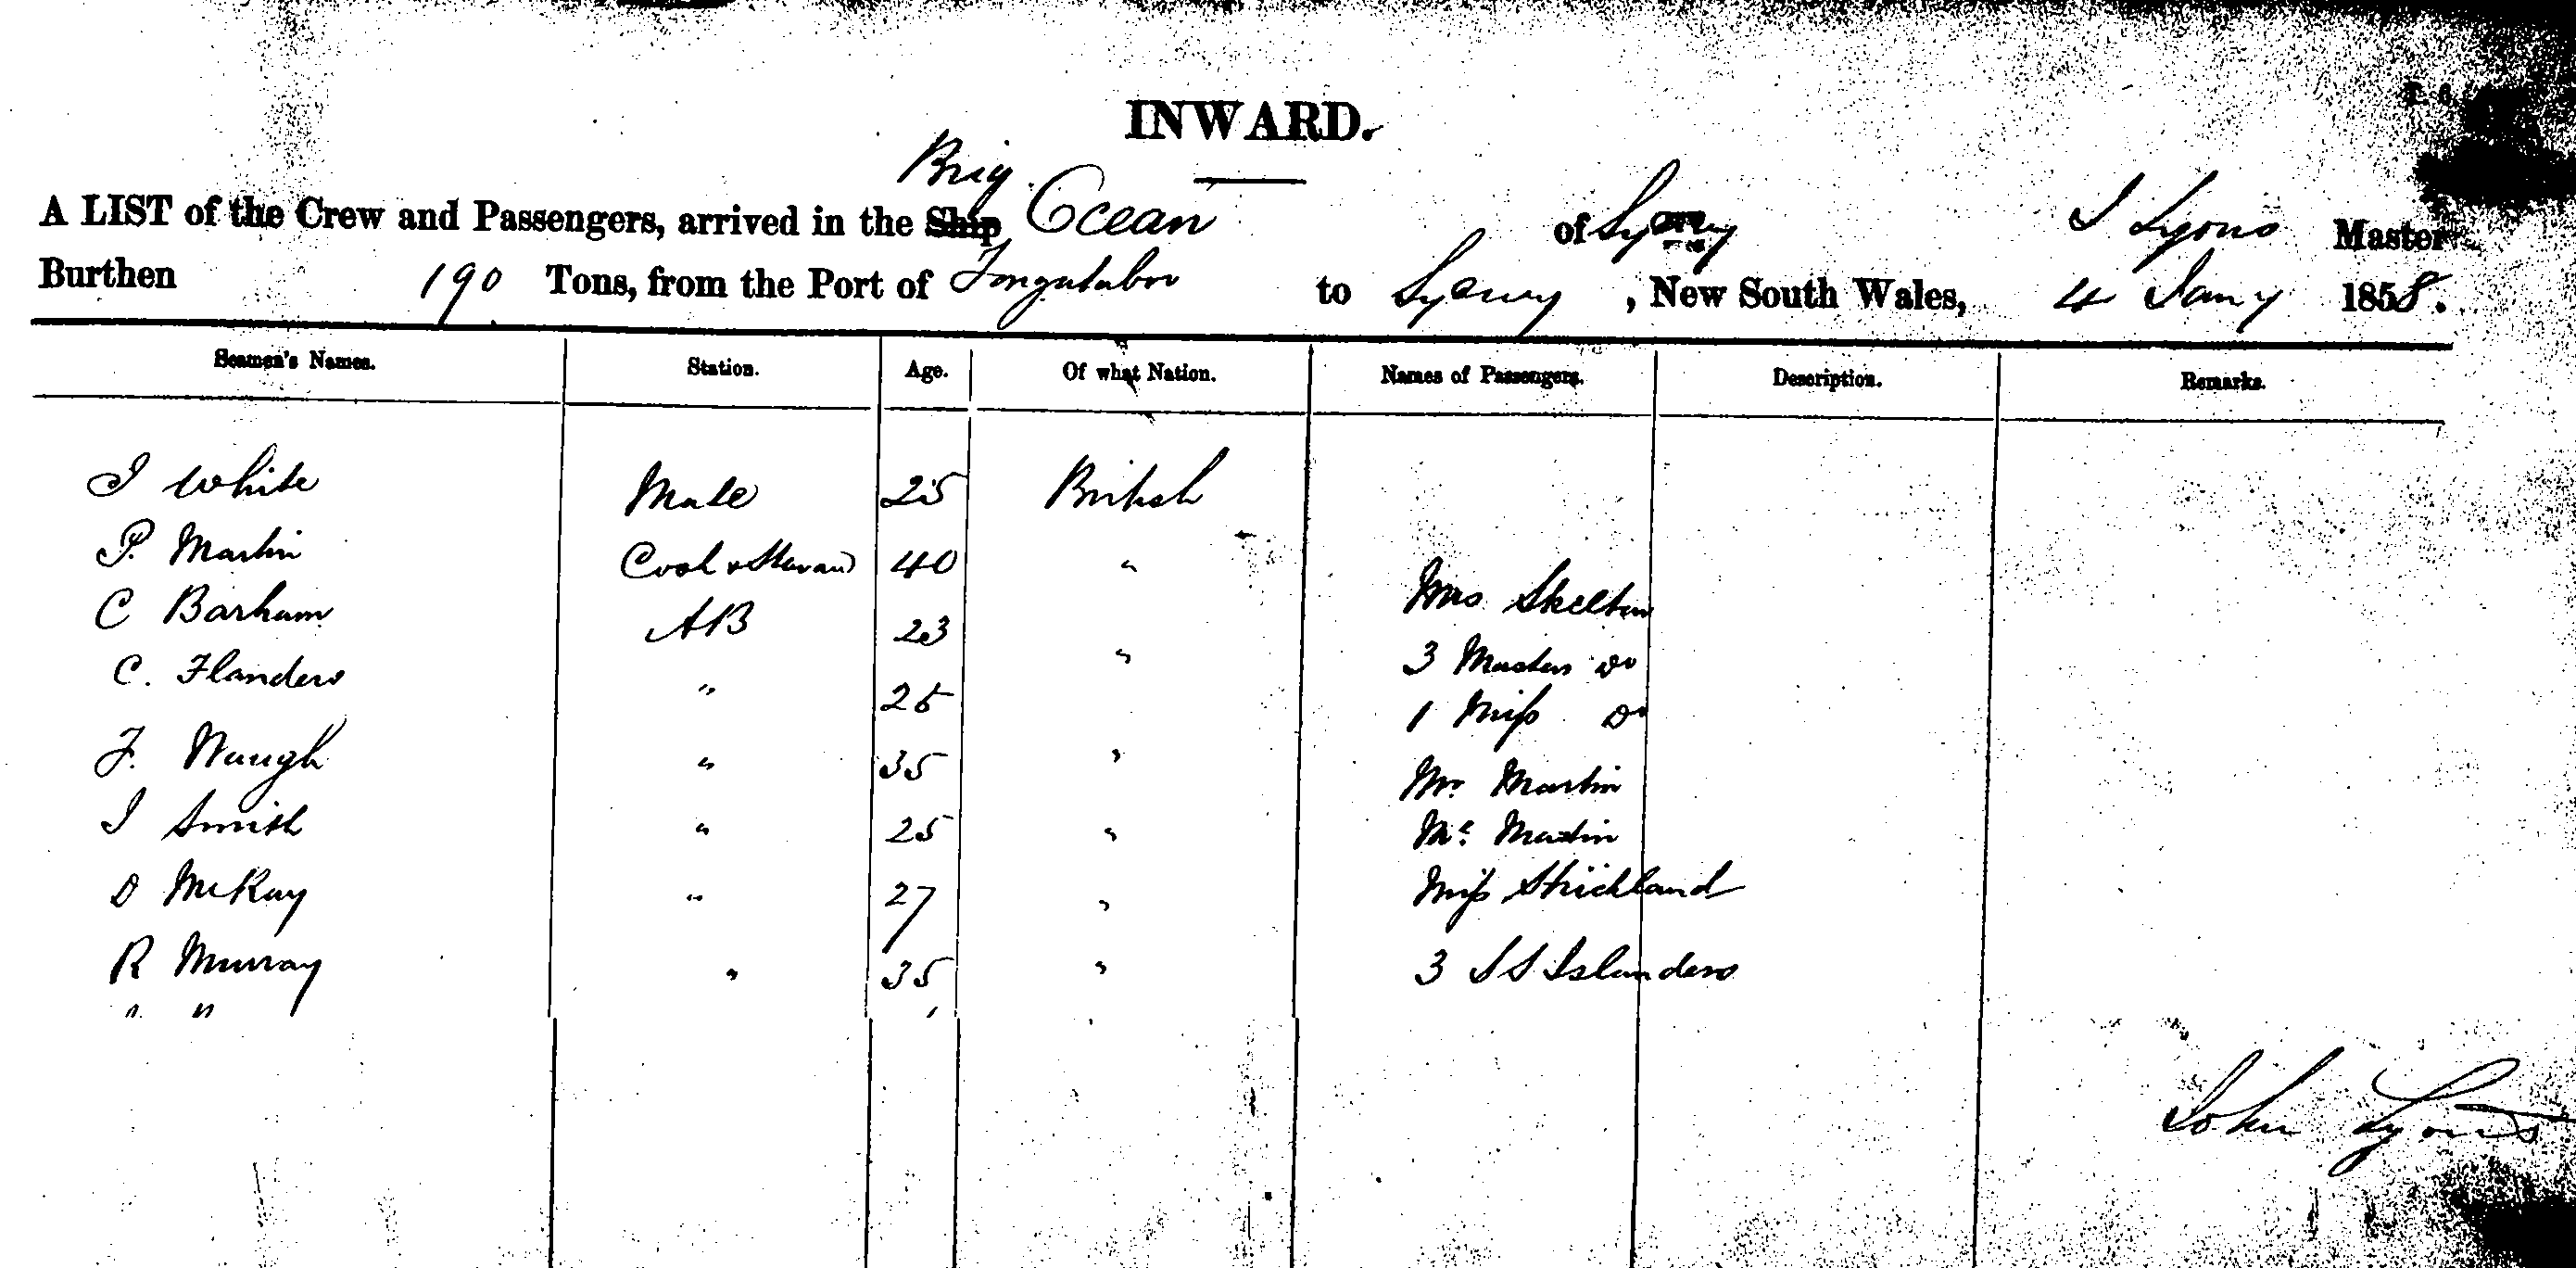 INWARD.
Brig
A LIST of the Crew and Passengers, arrived in the Ship Ocean of Sydney J Lyons Master
Burthen 190 Tons, from the Port of Tongataboo to Sydney, New South Wales, 4 Jany 1858.
Seamen's Names. Station. Age. Of what Nation. Names of Passengers. Description. Remarks.
J White Mate 25 British
P. Martin Cook & Steward 40 " Mrs Skelton
C Barham AB 23 " 3 Masters Do
C. Flanders " 25 1 Miss Do
J. Waugh " 35 " Mr. Martin
J Smith " 25 " Mr. Martin
D McKay " 27 " Miss Strickland
R Murray " 35 " 3 S S Islanders
John Lyons